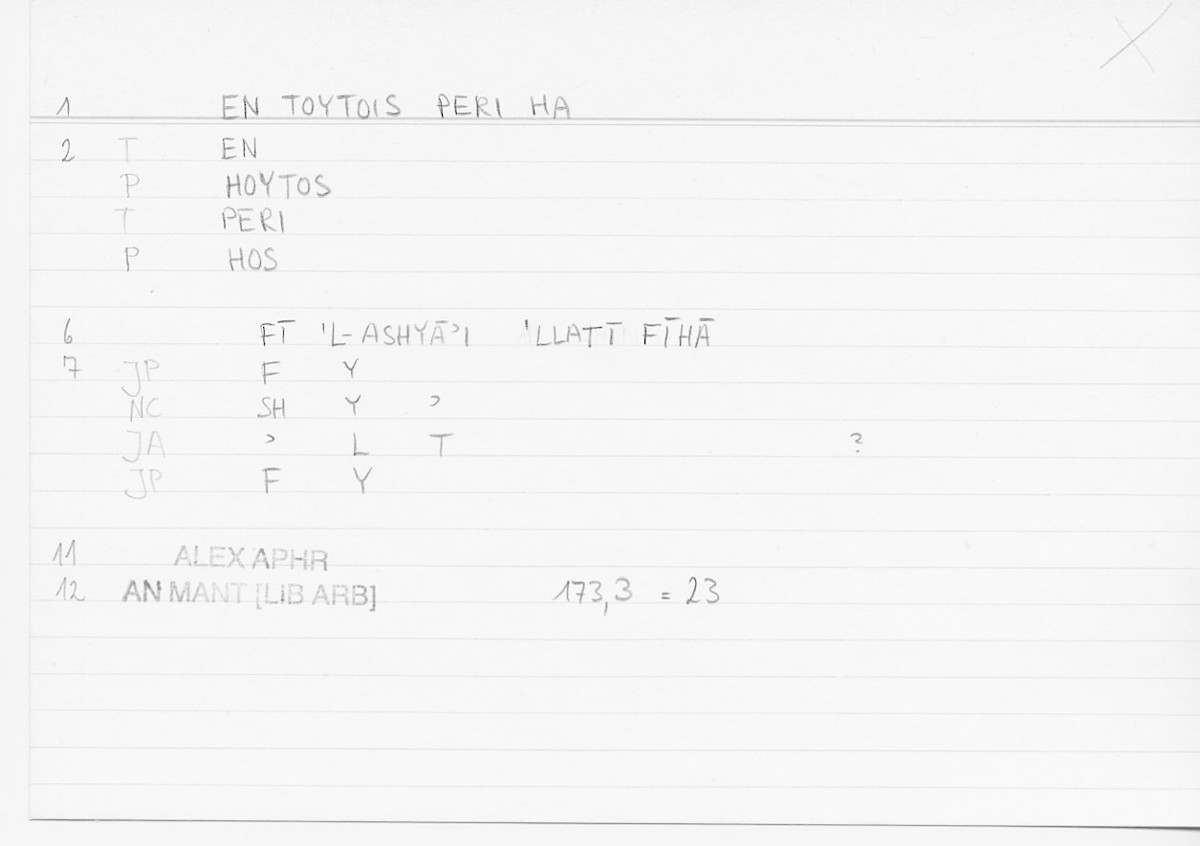 1 EN TOYTOIS PERI HA
2 T EN
P HOYTOS
T PERI
P HOS
6 FĪ 'L-ASHYĀʾI 'LLATĪ FĪHĀ
7 JP F Y
NC SH Y ʾ
JA ʾ L T ?
JP F Y
11 ALEX APHR
12 AN MANT [LIB ARB] 173,3 = 23